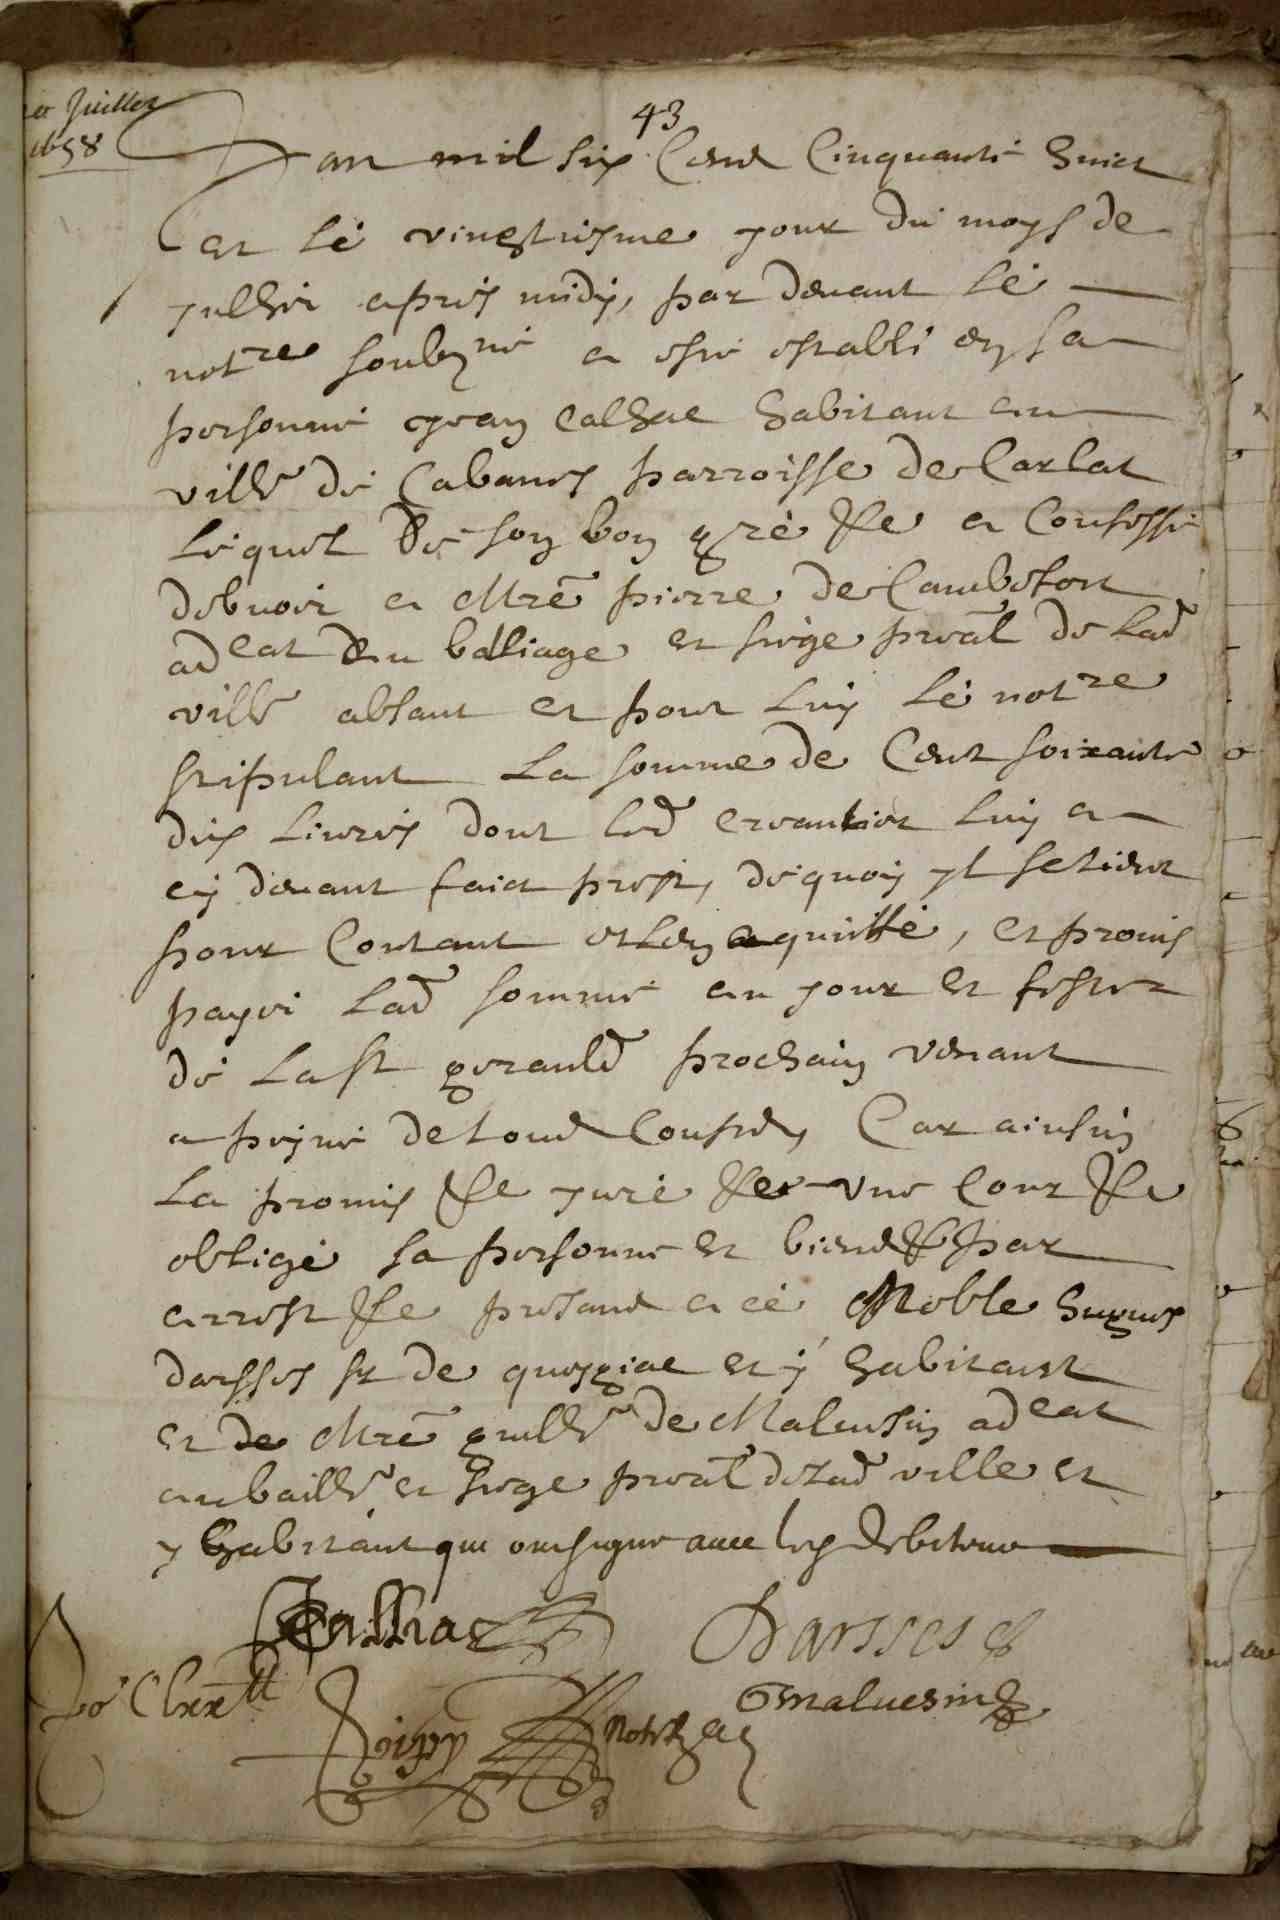 20 Juillet
1658
43
L an mil six Cens Cinquante huict
et le vingtiesme jour du moys de
julhet apres midy, par devant le
not^re soubz^né a esté establi en sa
personne jean calhac habitant au
ville de Cabanes parroisse de Carlat
lequel de son bon gré &c a Confessé
debvoir a M^re pierre de Cambefort
ad^cat au balliage et siege p^ral de lad
ville absant et pour luy le not^re
stipulant La somme de Cent soixante
dix livres dont led creantier luy a
cy devant faict prest, de quoy yl se tient
pour Contant et len quitté, et promis
payer lad somme au jour et feste
de la st gerauld prochain venant
a peyne de tous Couster, Car ainsin
La promis &c juré &c une Cour &c
obligé sa personne et biens & par
arrest &c presans a ce Noble hugues
darsses sr de et y habitant
et de M^re guill^e de Malvesin ad^cat
au baill^e et siege p^ral de lad ville et
y habitant qui ont signé avec led debiteur
Calhac
Darsses
po^r Clxx^tt
Gmalvesin
not^re